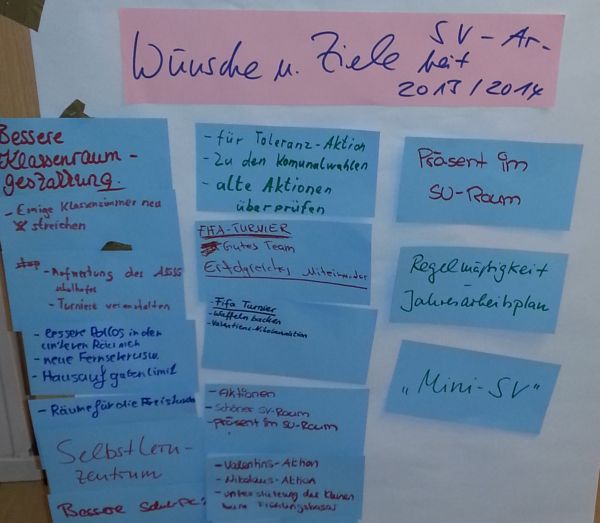 Wünsche u. Ziele SV-Ar-
beit
2013/2014
Bessere
Klassenraum-
gestaltung
- Einige Klassenzimmer neu
streichen
- Aufwertung des
schulhofes
- Turniere veranstalten
- bessere in den
anderen Räumen
- neue Fernseher usw.
- Hausaufgabenlimit
- Räume für die
Selbstlern-
zentrum
Bessere
- für Toleranz-Aktion
- Zu den Komunalwahlen
- alte Aktionen
überprüfen
FIFA-TURNIER
Gutes Team
Erfolgreiches Miteinander
- Fifa Turnier
- Waffeln backen
- Valentins-Nikolausaktion
- Aktionen
- schöner SV-Raum
- präsent im SV-Raum
- Valentins-Aktion
- Nikolaus-Aktion
- unterstützung der kleinen
beim Frühlingsbasar
Präsent im
SV-Raum
Regelmäßigkeit
-
Jahresarbeitsplan
„Mini-SV"